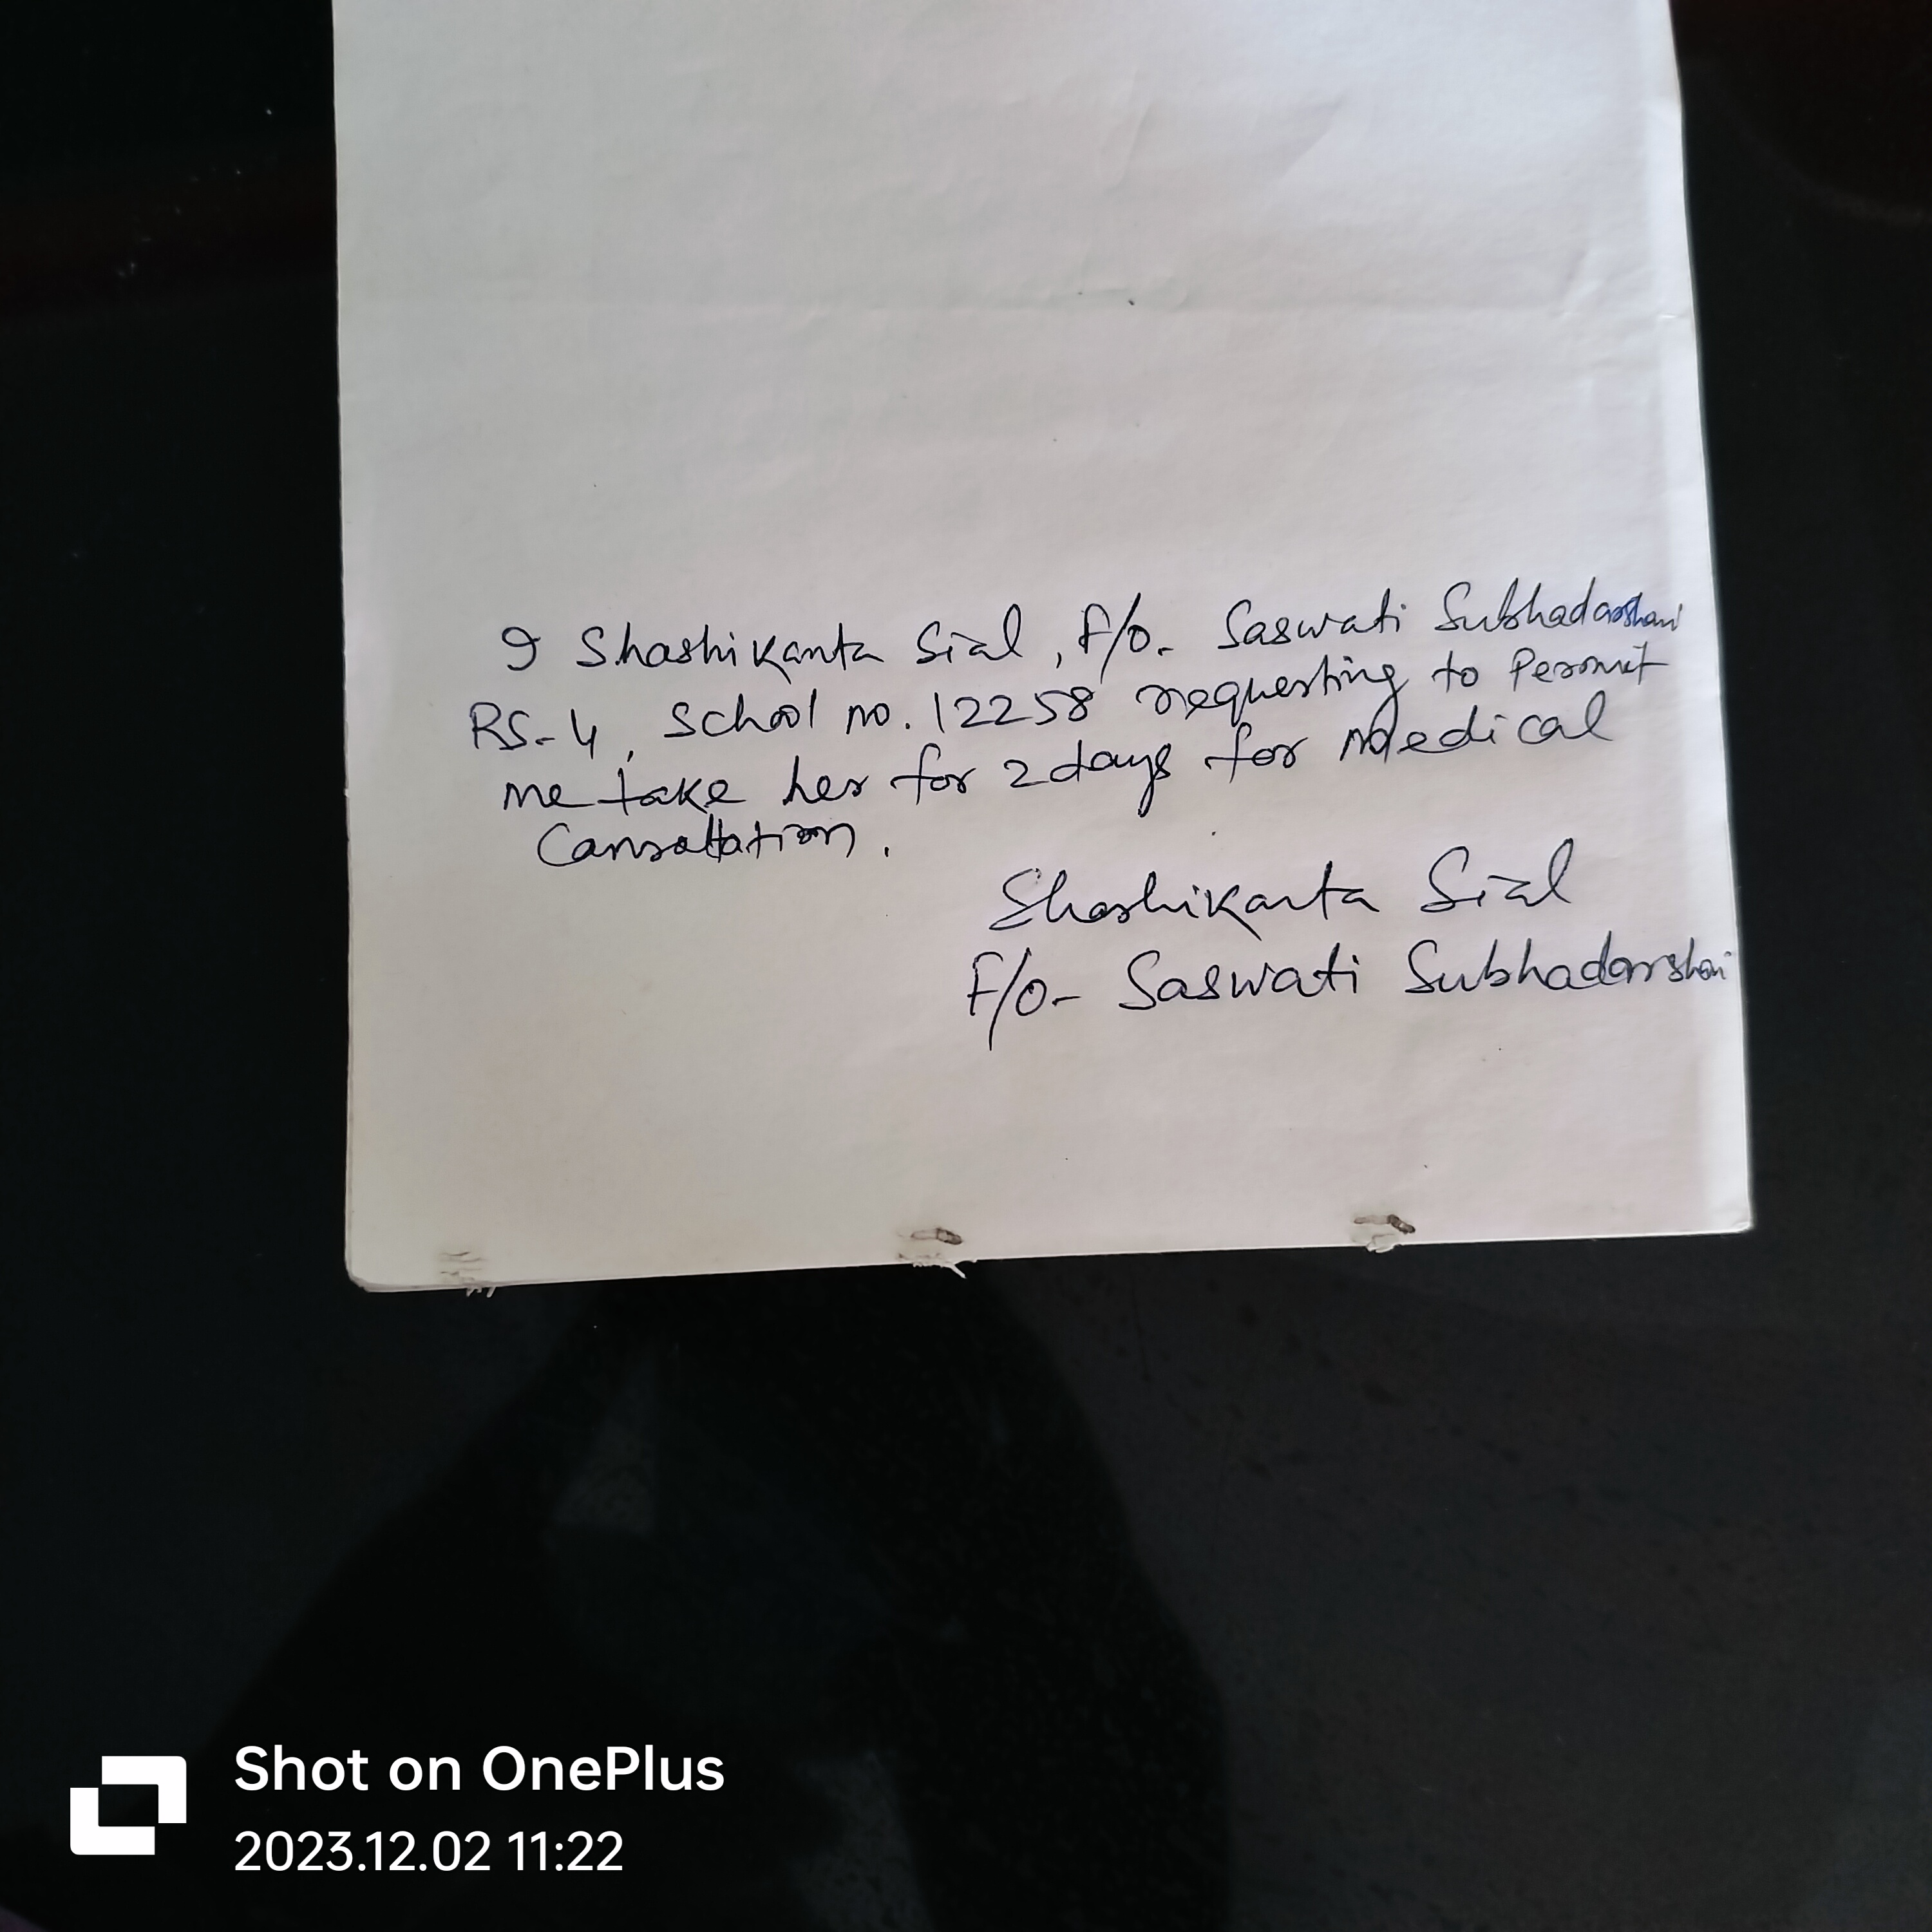 I Shashikanta Sial, F/o- Saswati Subhadarshani
RS-4, School no. 12258 requesting to Permit
me take her for 2 days for Medical
Cansaltation.
Shashikanta Sial
F/o- Saswati Subhadarshani
Shot on OnePlus
2023.12.02 11:22